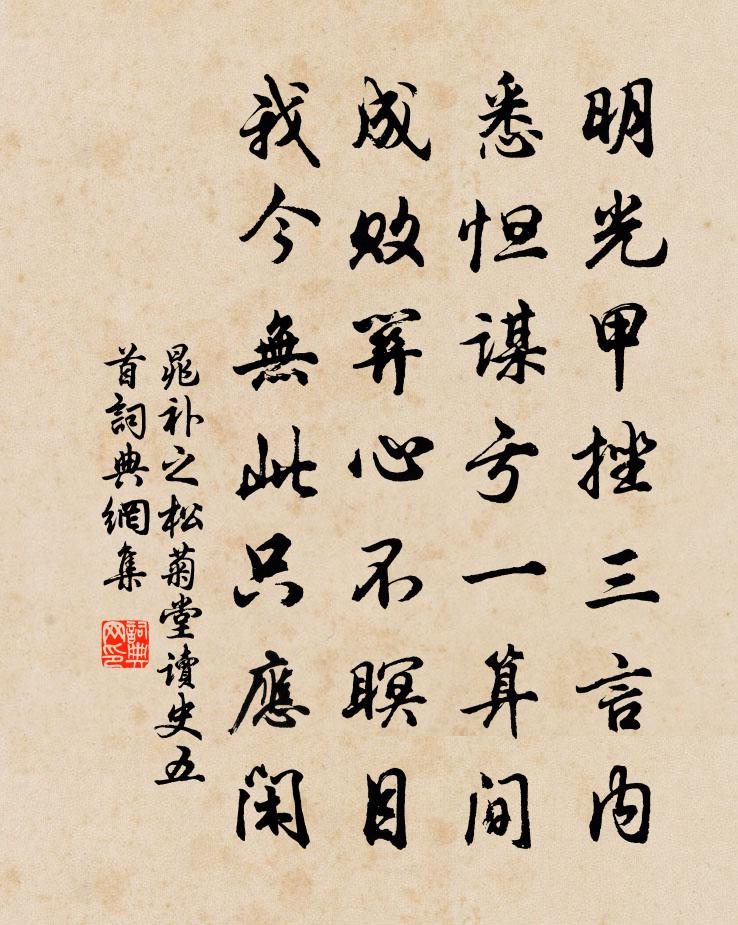 明光甲挫三言内
悉怛謀亏一算間
成敗關心不瞑目
我今無此只應閑
晁补之松菊堂讀史五
首詞典網集
詞典
网印